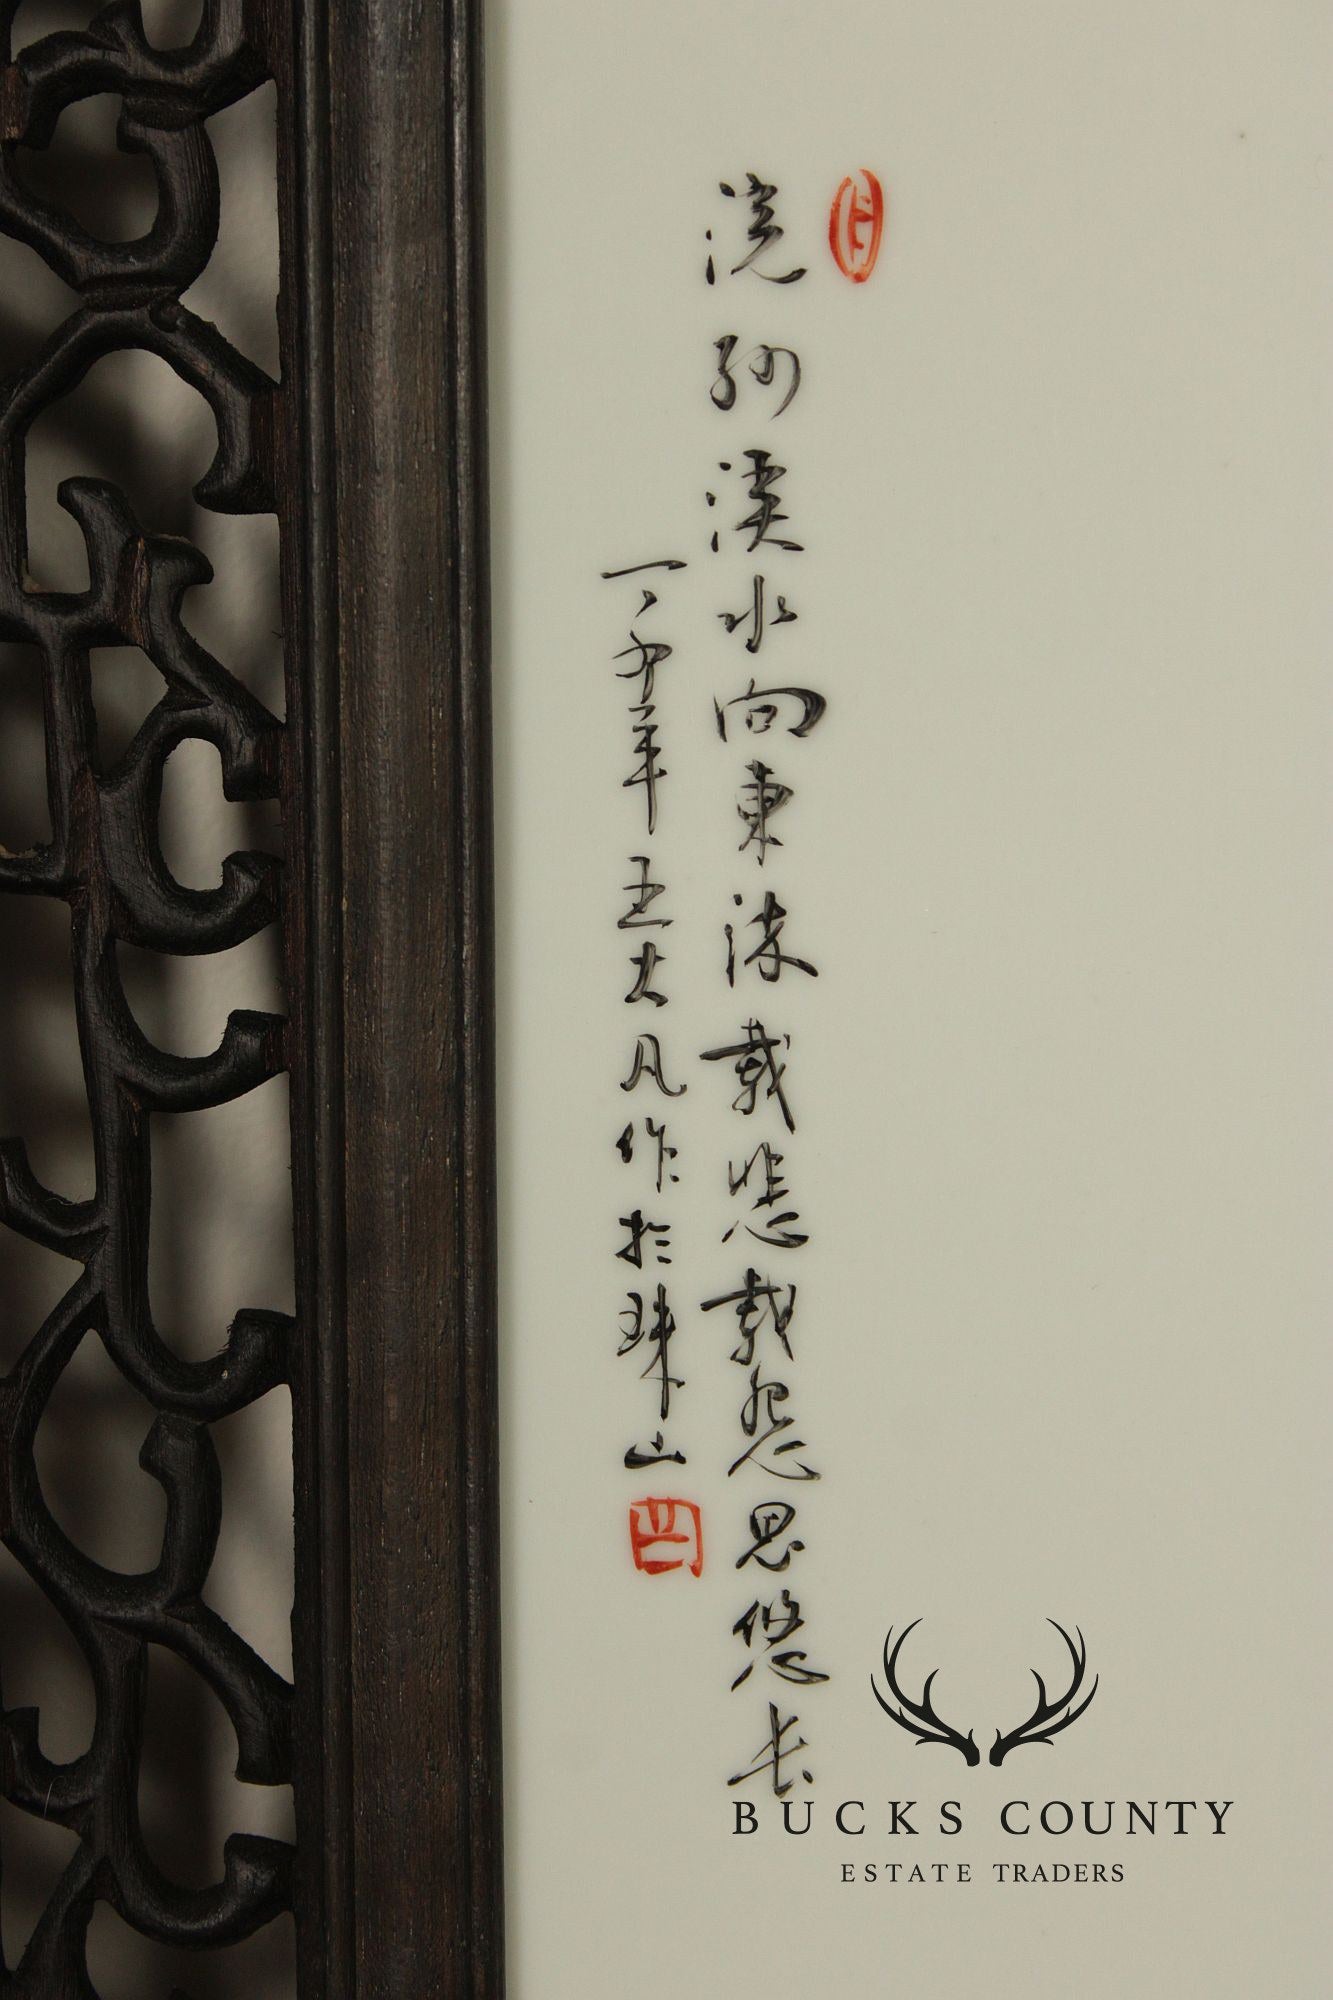 浣纱溪水向东流载悲载怨思悠长
辛卯年王大凡作於珠山
BUCKS COUNTY
ESTATE TRADERS